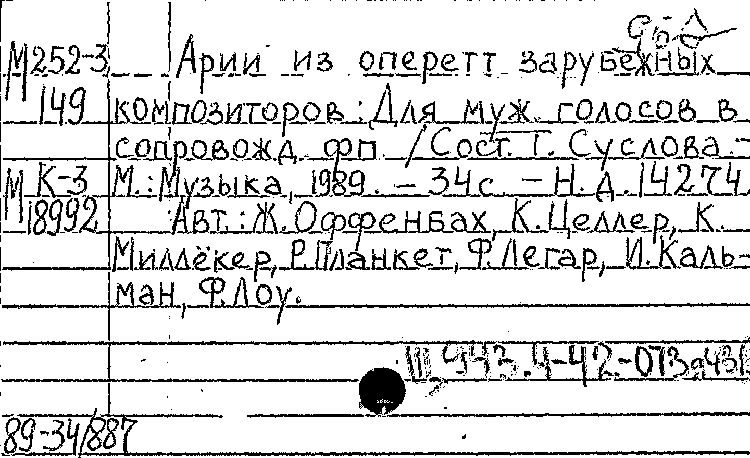 М252-3 Арии из оперетт зарубежных
149 композиторов: Для муж. голосов в
сопровожд. фп. / Сост. Т. Суслова. -
М К-3 М.: Музыка, 1989. - 34 с. - Н. д. 14274
18992 Авт.: Ж. Оффенбах, К. Целлер, К.
Миллёкер, Р. Планкет, Ф. Легар, И. Каль-
ман, Ф. Лоу.
Щ943.4-42-073я43
89-34/887